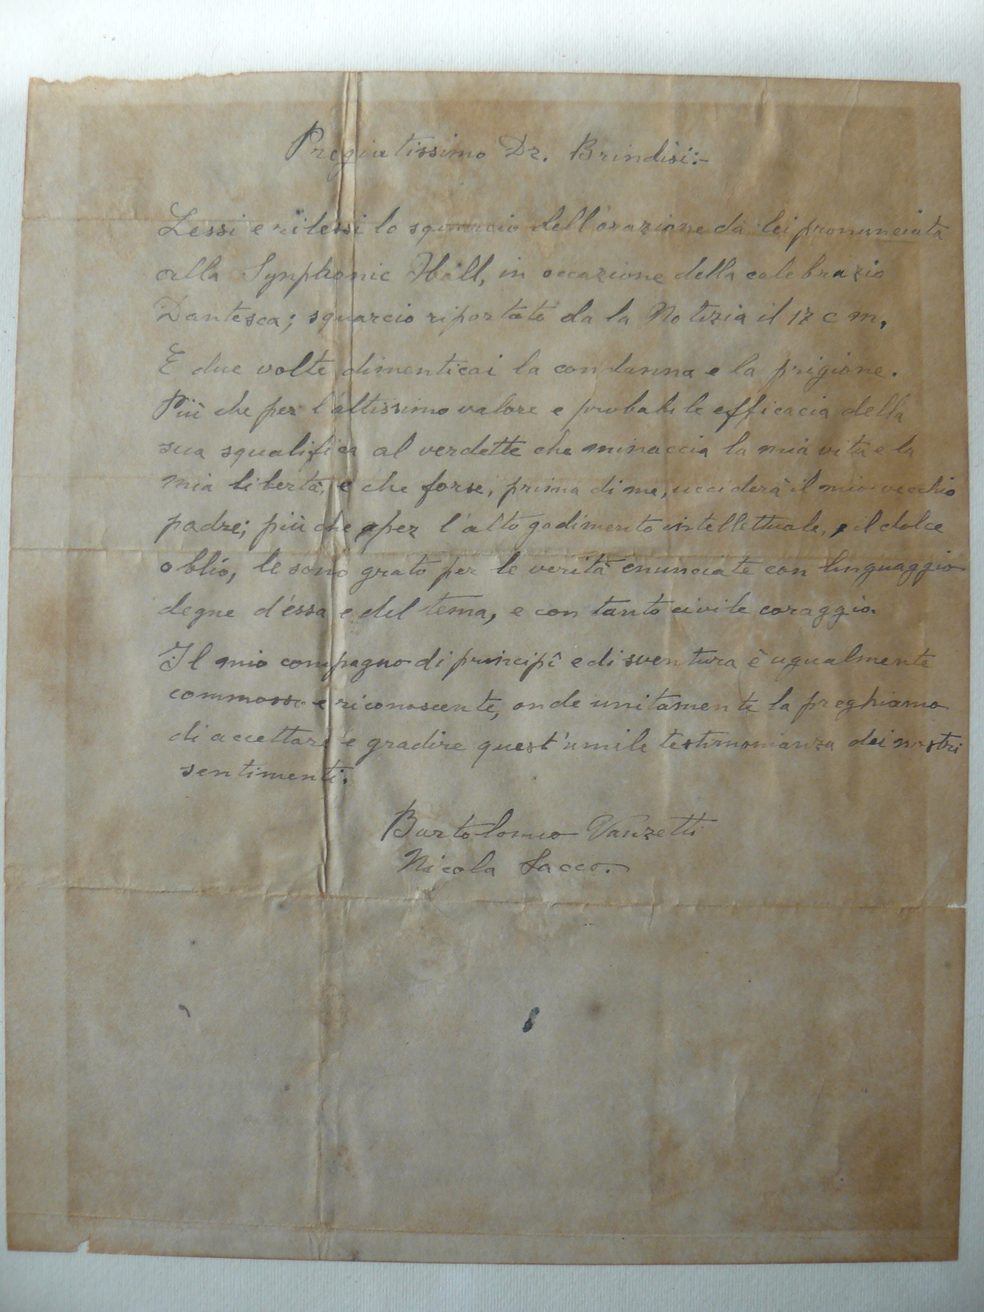 Pregiatissimo Dr. Brindisi:-
Lessi e rilessi lo squarcio dell'orazione da lei pronunciata
alla Synphonic Hall, in occazione della celebrazio
Dantesca; squarcio riportato da la Notizia il 17 c m.
E due volte dimenticai la condanna e la prigione.
Più che per l'altissimo valore e probabile efficacia della
sua squalifica al verdette che minaccia la mia vita e la
mia libertà, e che forse, prima di me, ucciderà il mio vecchio
padre; più che per l'alto godimento intellettuale, e il dolce
oblio, le sono grato per le verità enunciate con linguaggio
degne d'éssa e del tema, e con tanto civile coraggio.
Il mio compagno di principî e di sventura è ugualmente
commosso e riconoscente, onde unitamente la preghiamo
di accettare e gradire quest'umile testimonianza dei nostri
sentimenti.
Bartolomeo Vanzetti
Nicola Sacco.